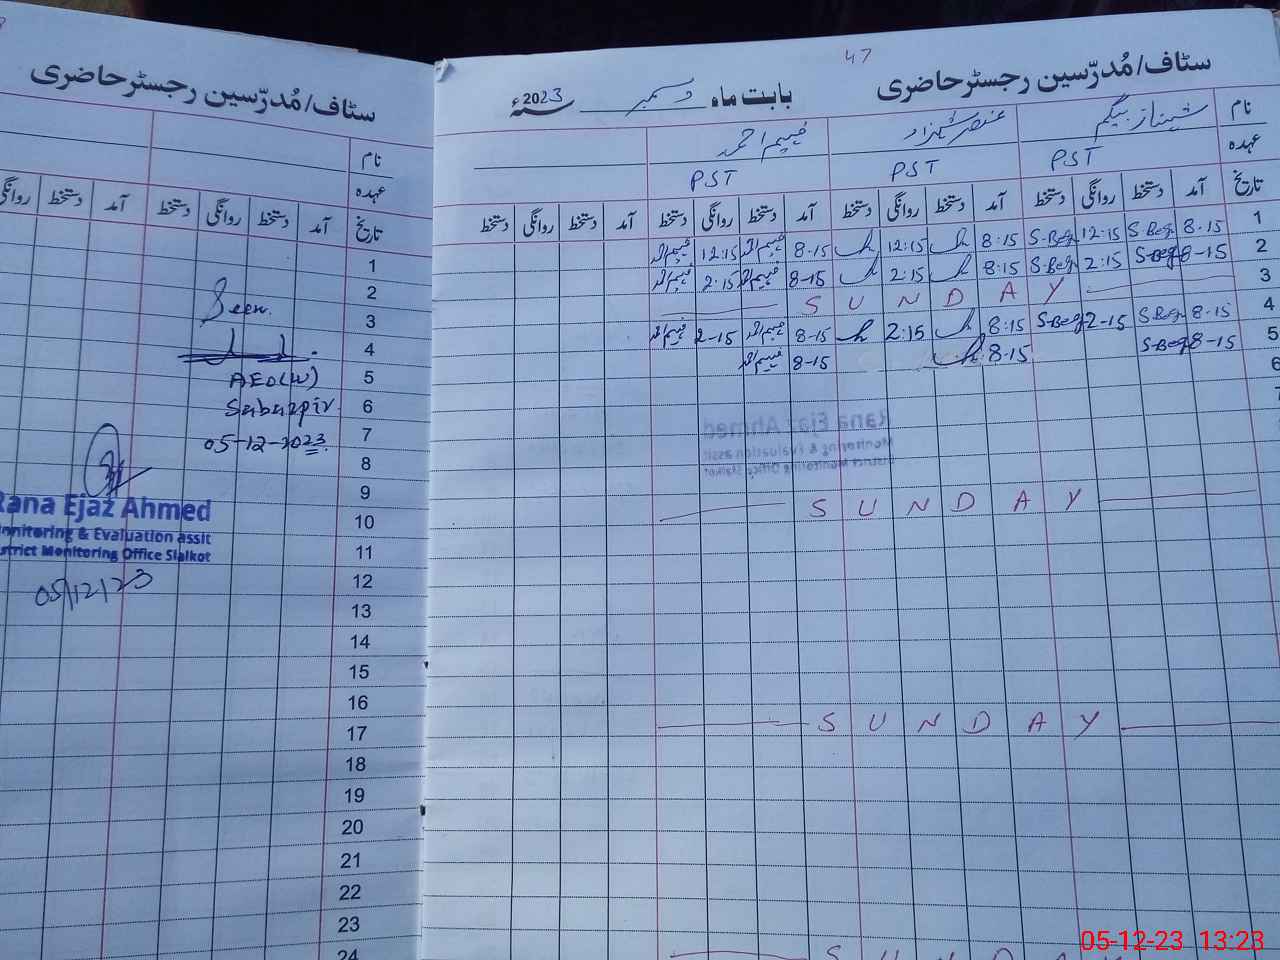 47
سٹاف/مُدرّسین رجسٹر حاضری
بابت ماہ دسمبر سنہ 2023ء
نام شہناز بیگم عنصر شہزاد
عہدہ PST PST PST
تاریخ آمد دستخط روانگی دستخط آمد دستخط روانگی دستخط آمد دستخط روانگی دستخط آمد دستخط روانگی دستخط
1 8-15 S.Beg 12:15 S.Beg 8:15 12:15 8-15 12:15
2 8-15 S.Beg 2:15 S.Beg 8:15 2:15 8-15 2:15
3 SUNDAY
4 8-15 S.Beg 2-15 S.Beg 8:15 2:15 8-15 2-15
5 8-15 S.Beg 8-15 8-15
6
7
SUNDAY
SUNDAY
SUNDAY
Rana Ejaz Ahmed
Monitoring & Evaluation assit
District Monitoring Office Sialkot
سٹاف/مُدرّسین رجسٹر حاضری
نام
عہدہ
تاریخ آمد دستخط روانگی دستخط آمد دستخط روانگی
1
2
3
4
5
6
7
8
9
10
11
12
13
14
15
16
17
18
19
20
21
22
23
24
Seen.
AEO(W)
Saburpir
05-12-2023.
Rana Ejaz Ahmed
Monitoring & Evaluation assit
District Monitoring Office Sialkot
05/12/23
05-12-23 13:23